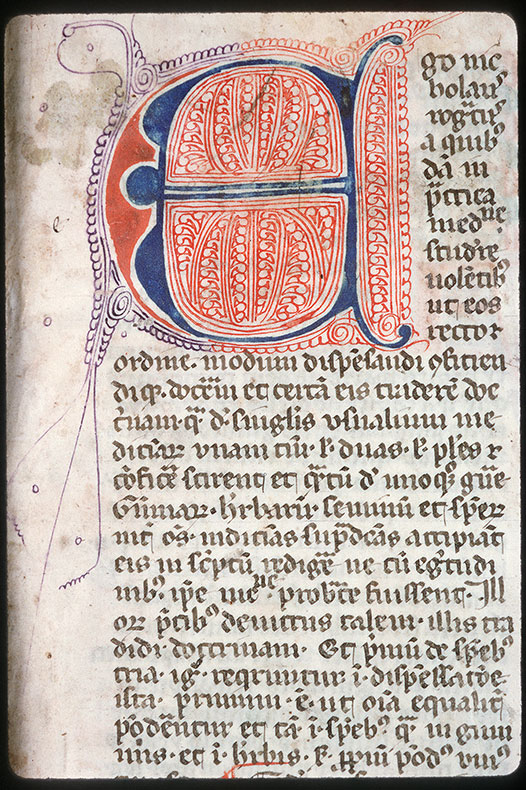 Ego nic
holaus
rogatus
a quibus
dam in
practica
medicine
studere
volentibus
ut eos
recto
ordine. modum dispensandi
dique docerem et certam eis traderem doc
trinam. quia de singulis usualium me
dicinarum unam tantum. vel duas. vel plures
conficere scirent et quantum de unoquoque genere
Gummarum. herbarum. seminum et specierum
omnes medicinas supradictas accipiant
eis in scriptum redigere ne cum egritudi
nibus. ipse probate fuissent. Ill
orum precibus devictus talem. illis tra
didi. doctrinam. Et primum de speciebus
tria. igitur requiruntur in dispensatione
ista. primum est. ut omnia equaliter
ponderentur et tam in speciebus. quam in gummi
nis. et in herbis.